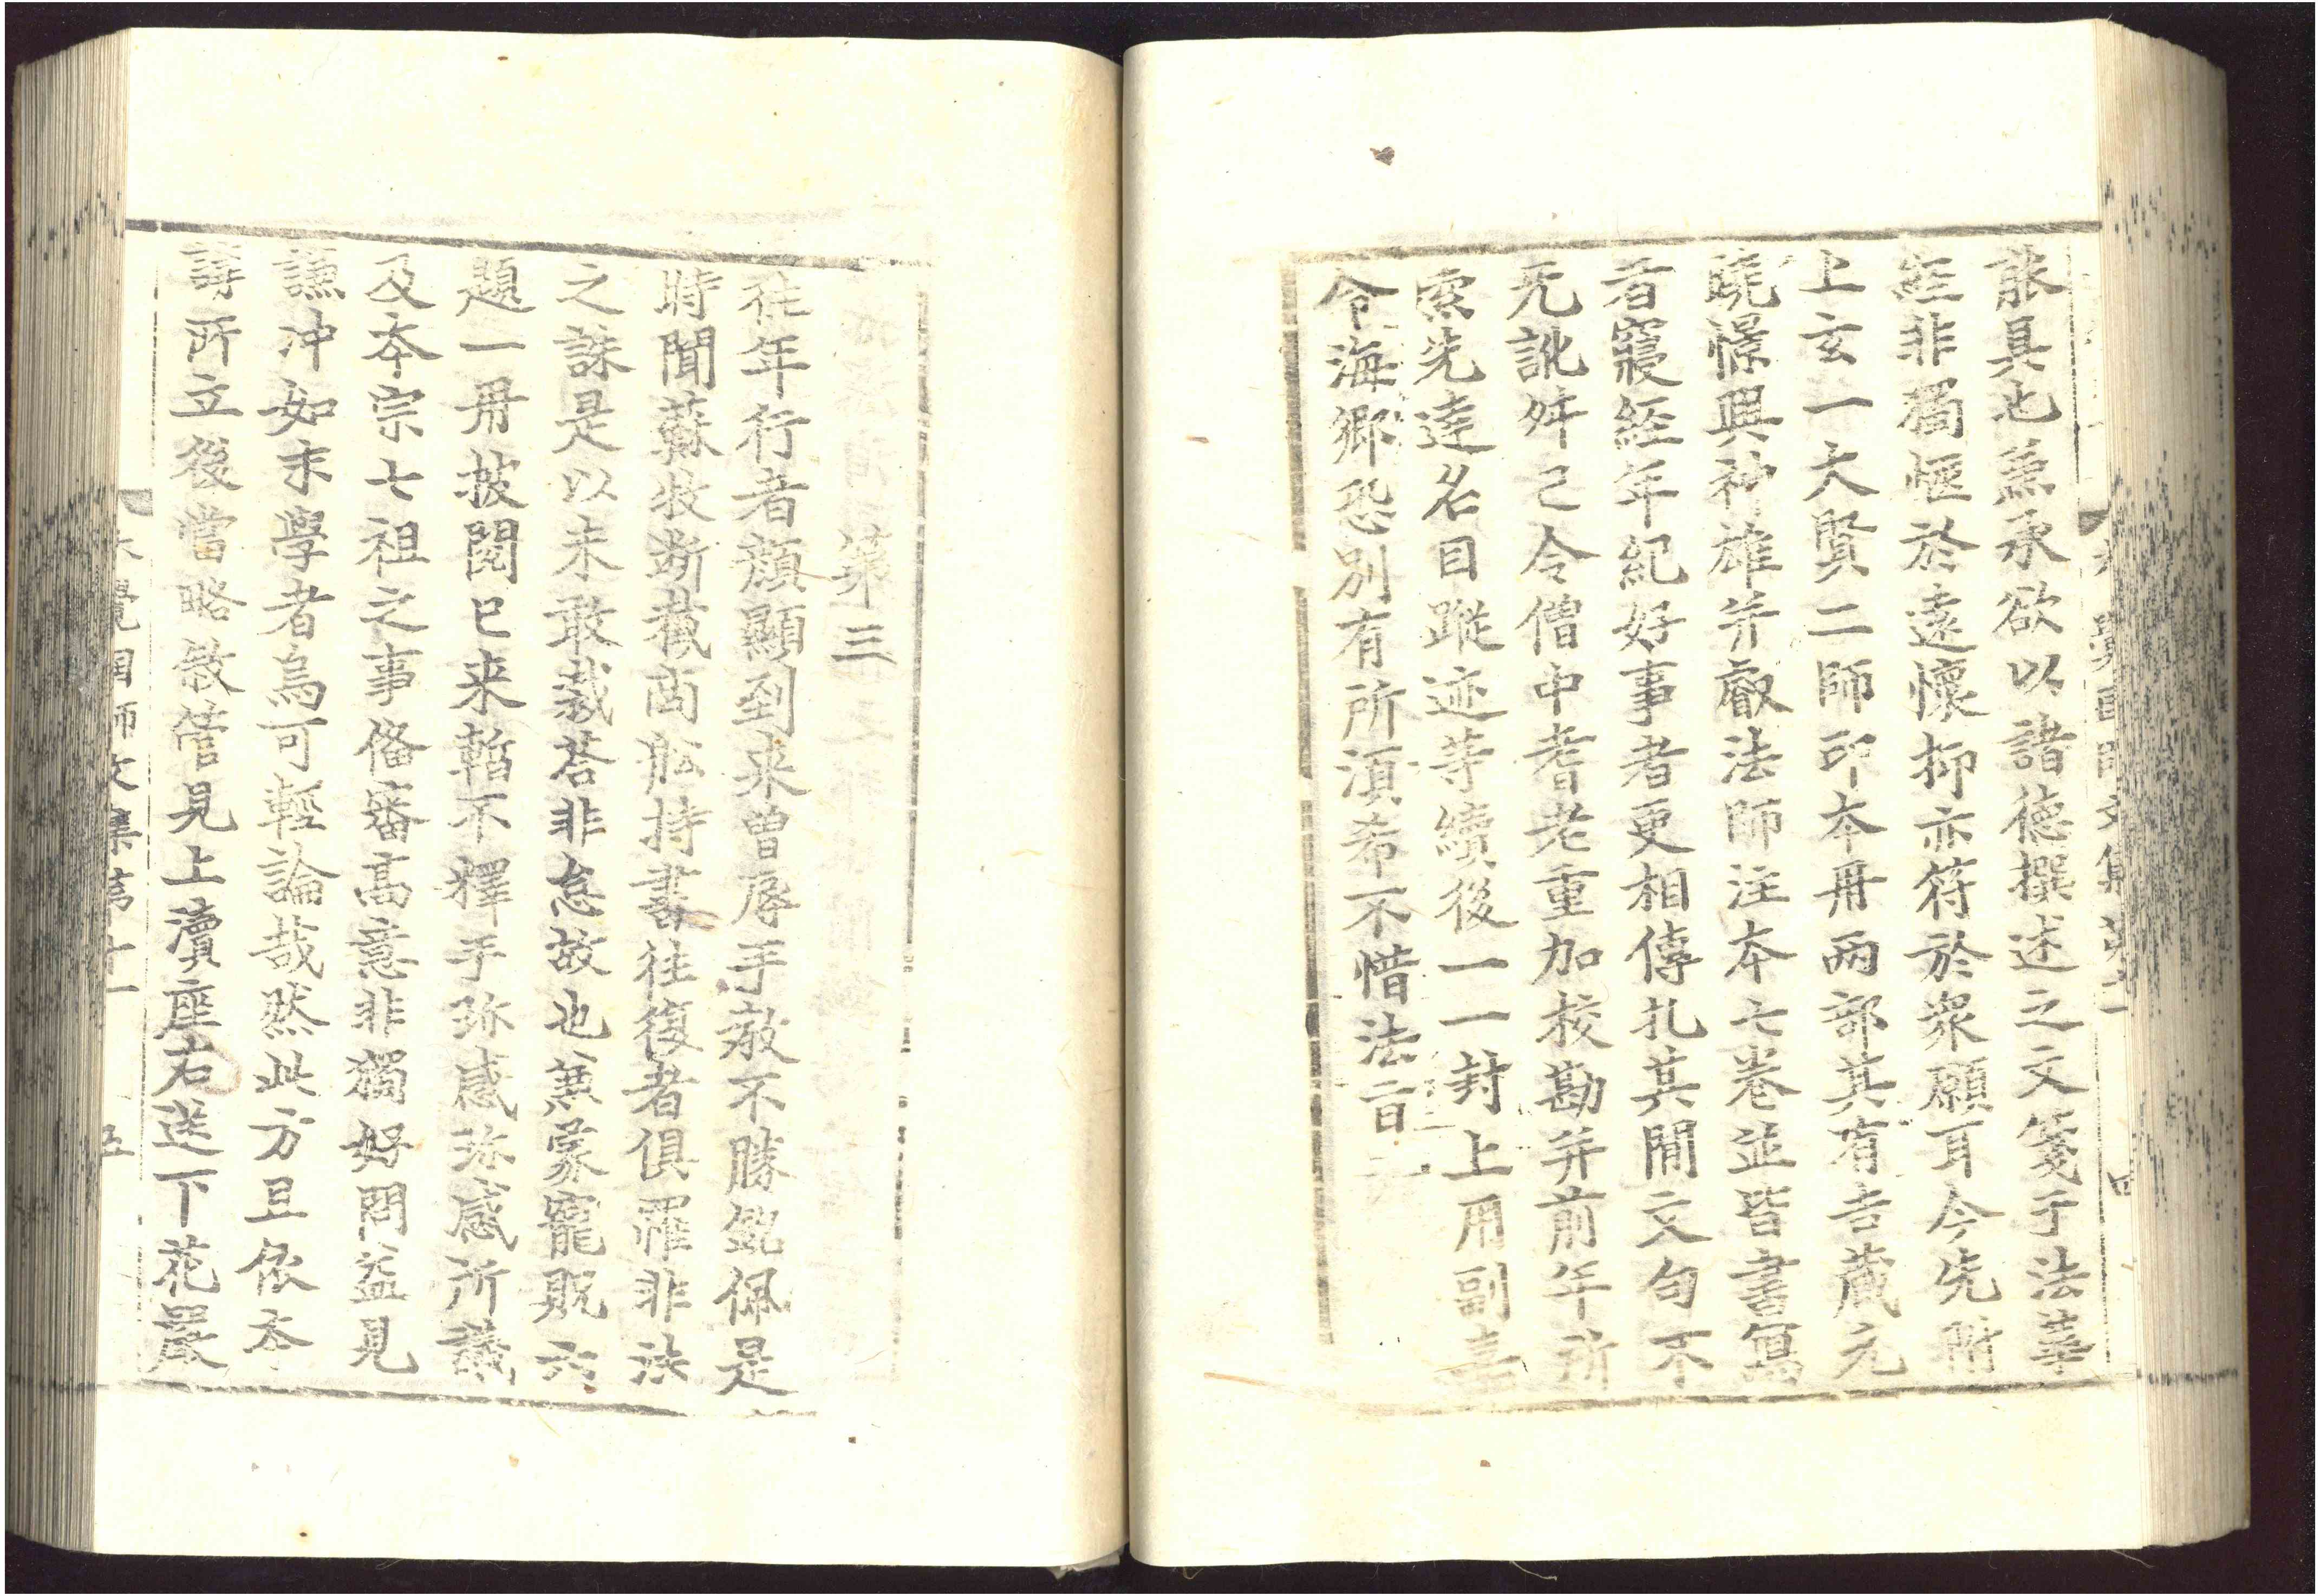 求具也兼承欲以諸德撰述之文箋于法華
經非獨愜於遠懷抑亦符於衆願耳今先附
上玄一大賢二師印本冊兩部其有吉藏元
曉憬興神雄并叡法師注本七卷並皆書寫
者寢經年紀好事者更相傳扎其閒文句不
无訛舛已令僧中耆老重加校勘并前年所
索先達名目蹤迹等續後一一封上用副嘉
令海鄕恐別有所湏希不惜法言
大覺國師文集第十一 四
第三
往年行者顏顯到来曾辱手敎不勝銘佩是
時聞蘇牧斷截啇舩持書往復者俱罹非法
之誅是以未敢裁荅非怠故也兼蒙寵貺六
題一冊披閱已来暫不釋手珎感珎感所議
及本宗七祖之事俻審高意非獨好問益見
謙沖如末學者烏可輕論哉然此方且依本
講所立後當略敘管見上瀆座右送下花嚴
大覺國師文集第十一 五